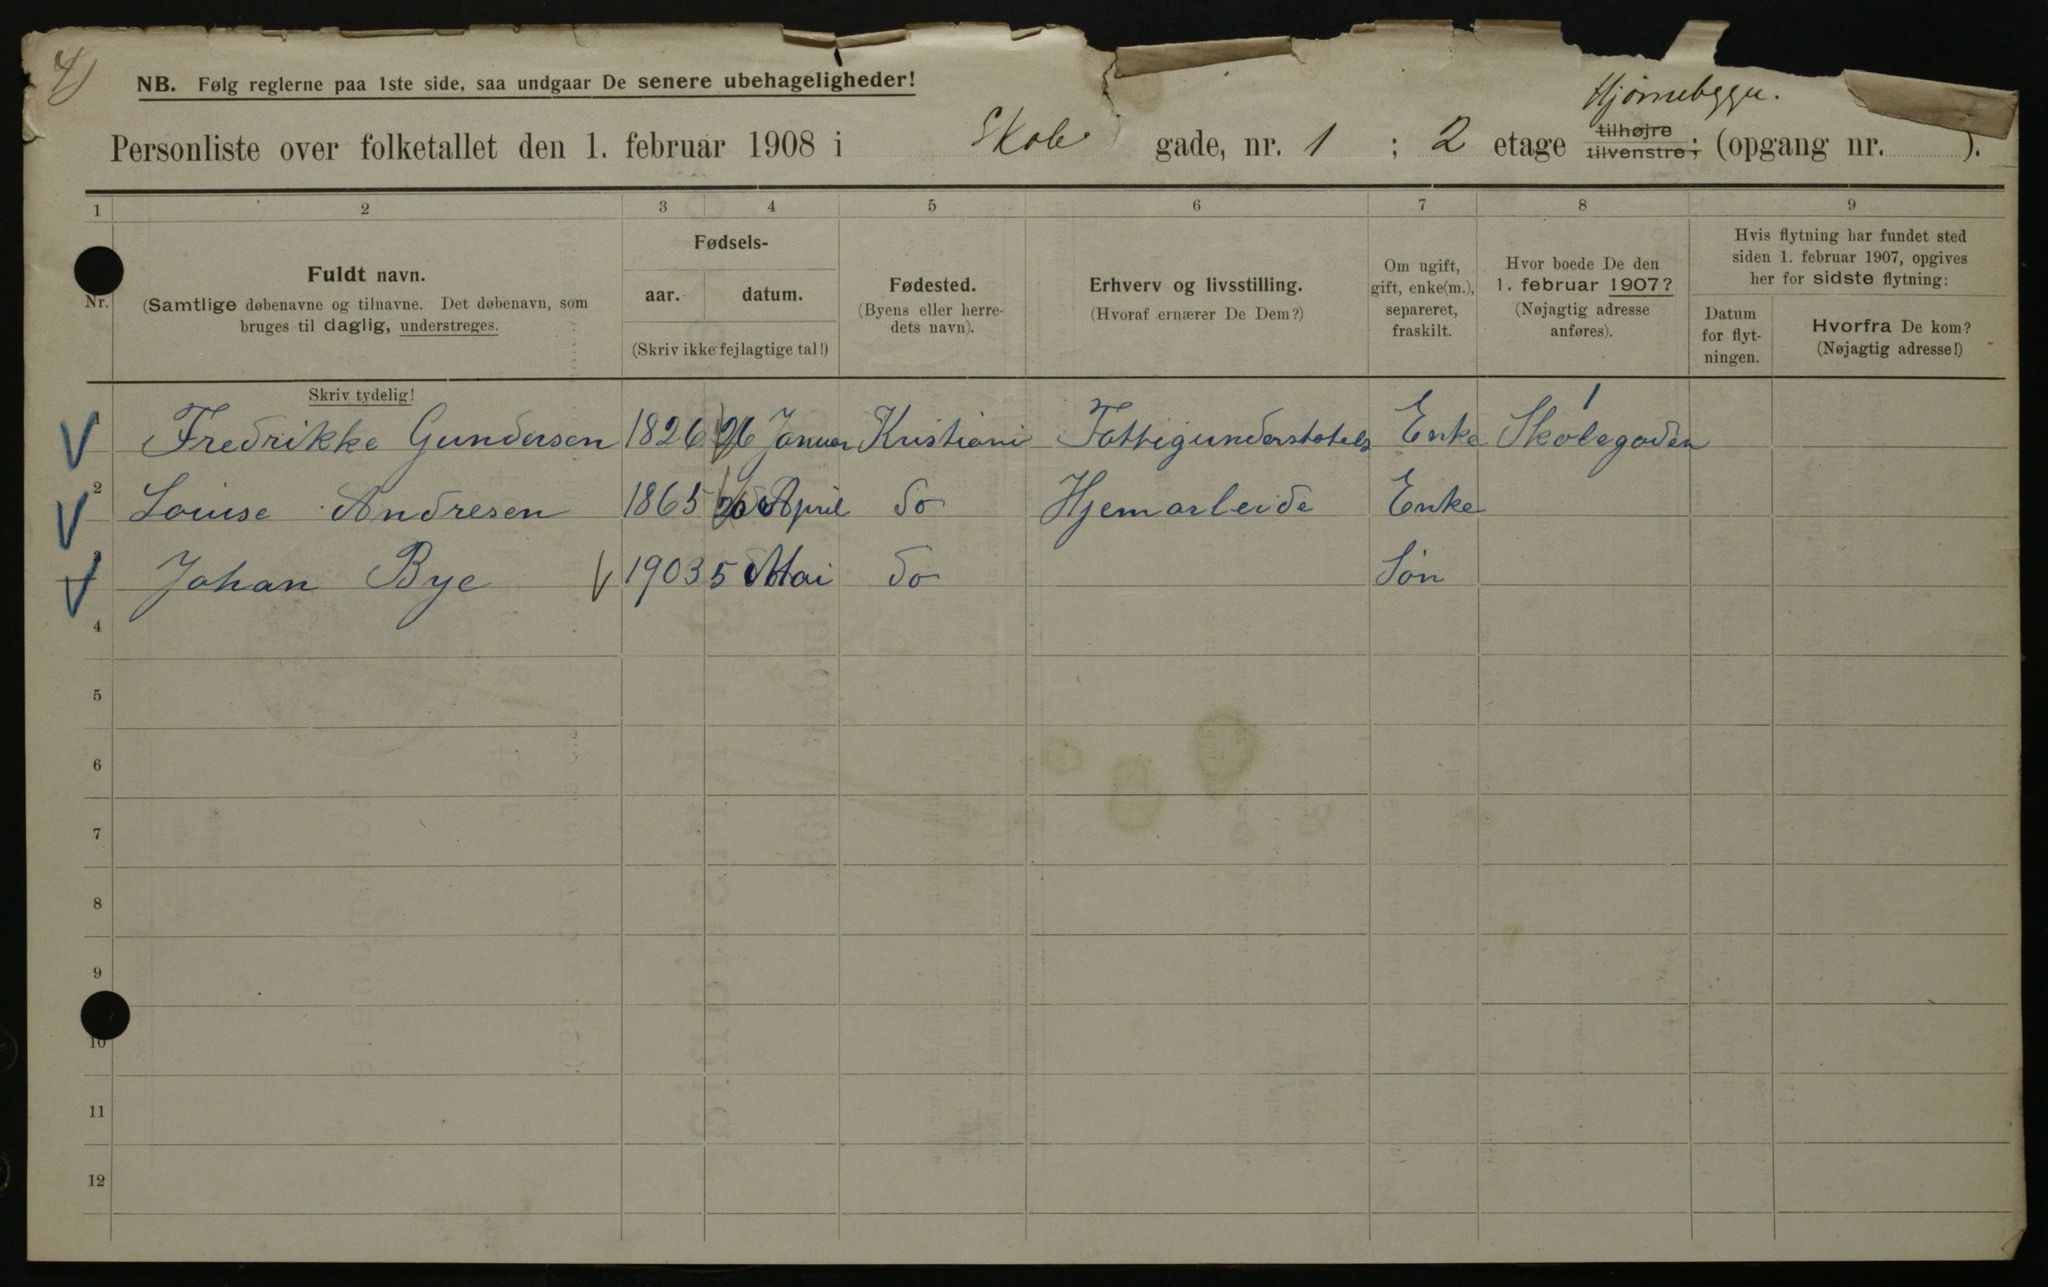 4)
NB. Følg reglerne paa 1ste side, saa undgaar De senere ubehageligheder!
Hjørnebygge.
Personliste over folketallet den 1. februar 1908 i Skole gade, nr. 1 ; 2 etage tilhøjre tilvenstre; (opgang nr. ).
1 2 3 4 5 6 7 8 9
Nr.
Fuldt navn.
(Samtlige døbenavne og tilnavne. Det døbenavn, som
bruges til daglig, understreges.
Fødsels-
aar. datum.
(Skriv ikke fejlagtige tal!)
Fødested.
(Byens eller herre-
dets navn).
Erhverv og livsstilling.
(Hvoraf ernærer De Dem?)
Om ugift,
gift, enke(m.),
separeret,
fraskilt.
Hvor boede De den
1. februar 1907?
(Nøjagtig adresse
anføres).
Hvis flytning har fundet sted
siden 1. februar 1907, opgives
her for sidste flytning:
Datum
for flyt-
ningen.
Hvorfra De kom?
(Nøjagtig adresse!)
Skriv tydelig!
Fredrikke Gundersen 1826 26 Januar Kristiani Fattigunderstotels Enke Skolegaden 1
2 Louise Andresen 1865 26 April do Hjemarleide Enke
Johan Bye 1903 5 Mai do Søn
4
5
6
7
8
9
10
11
12